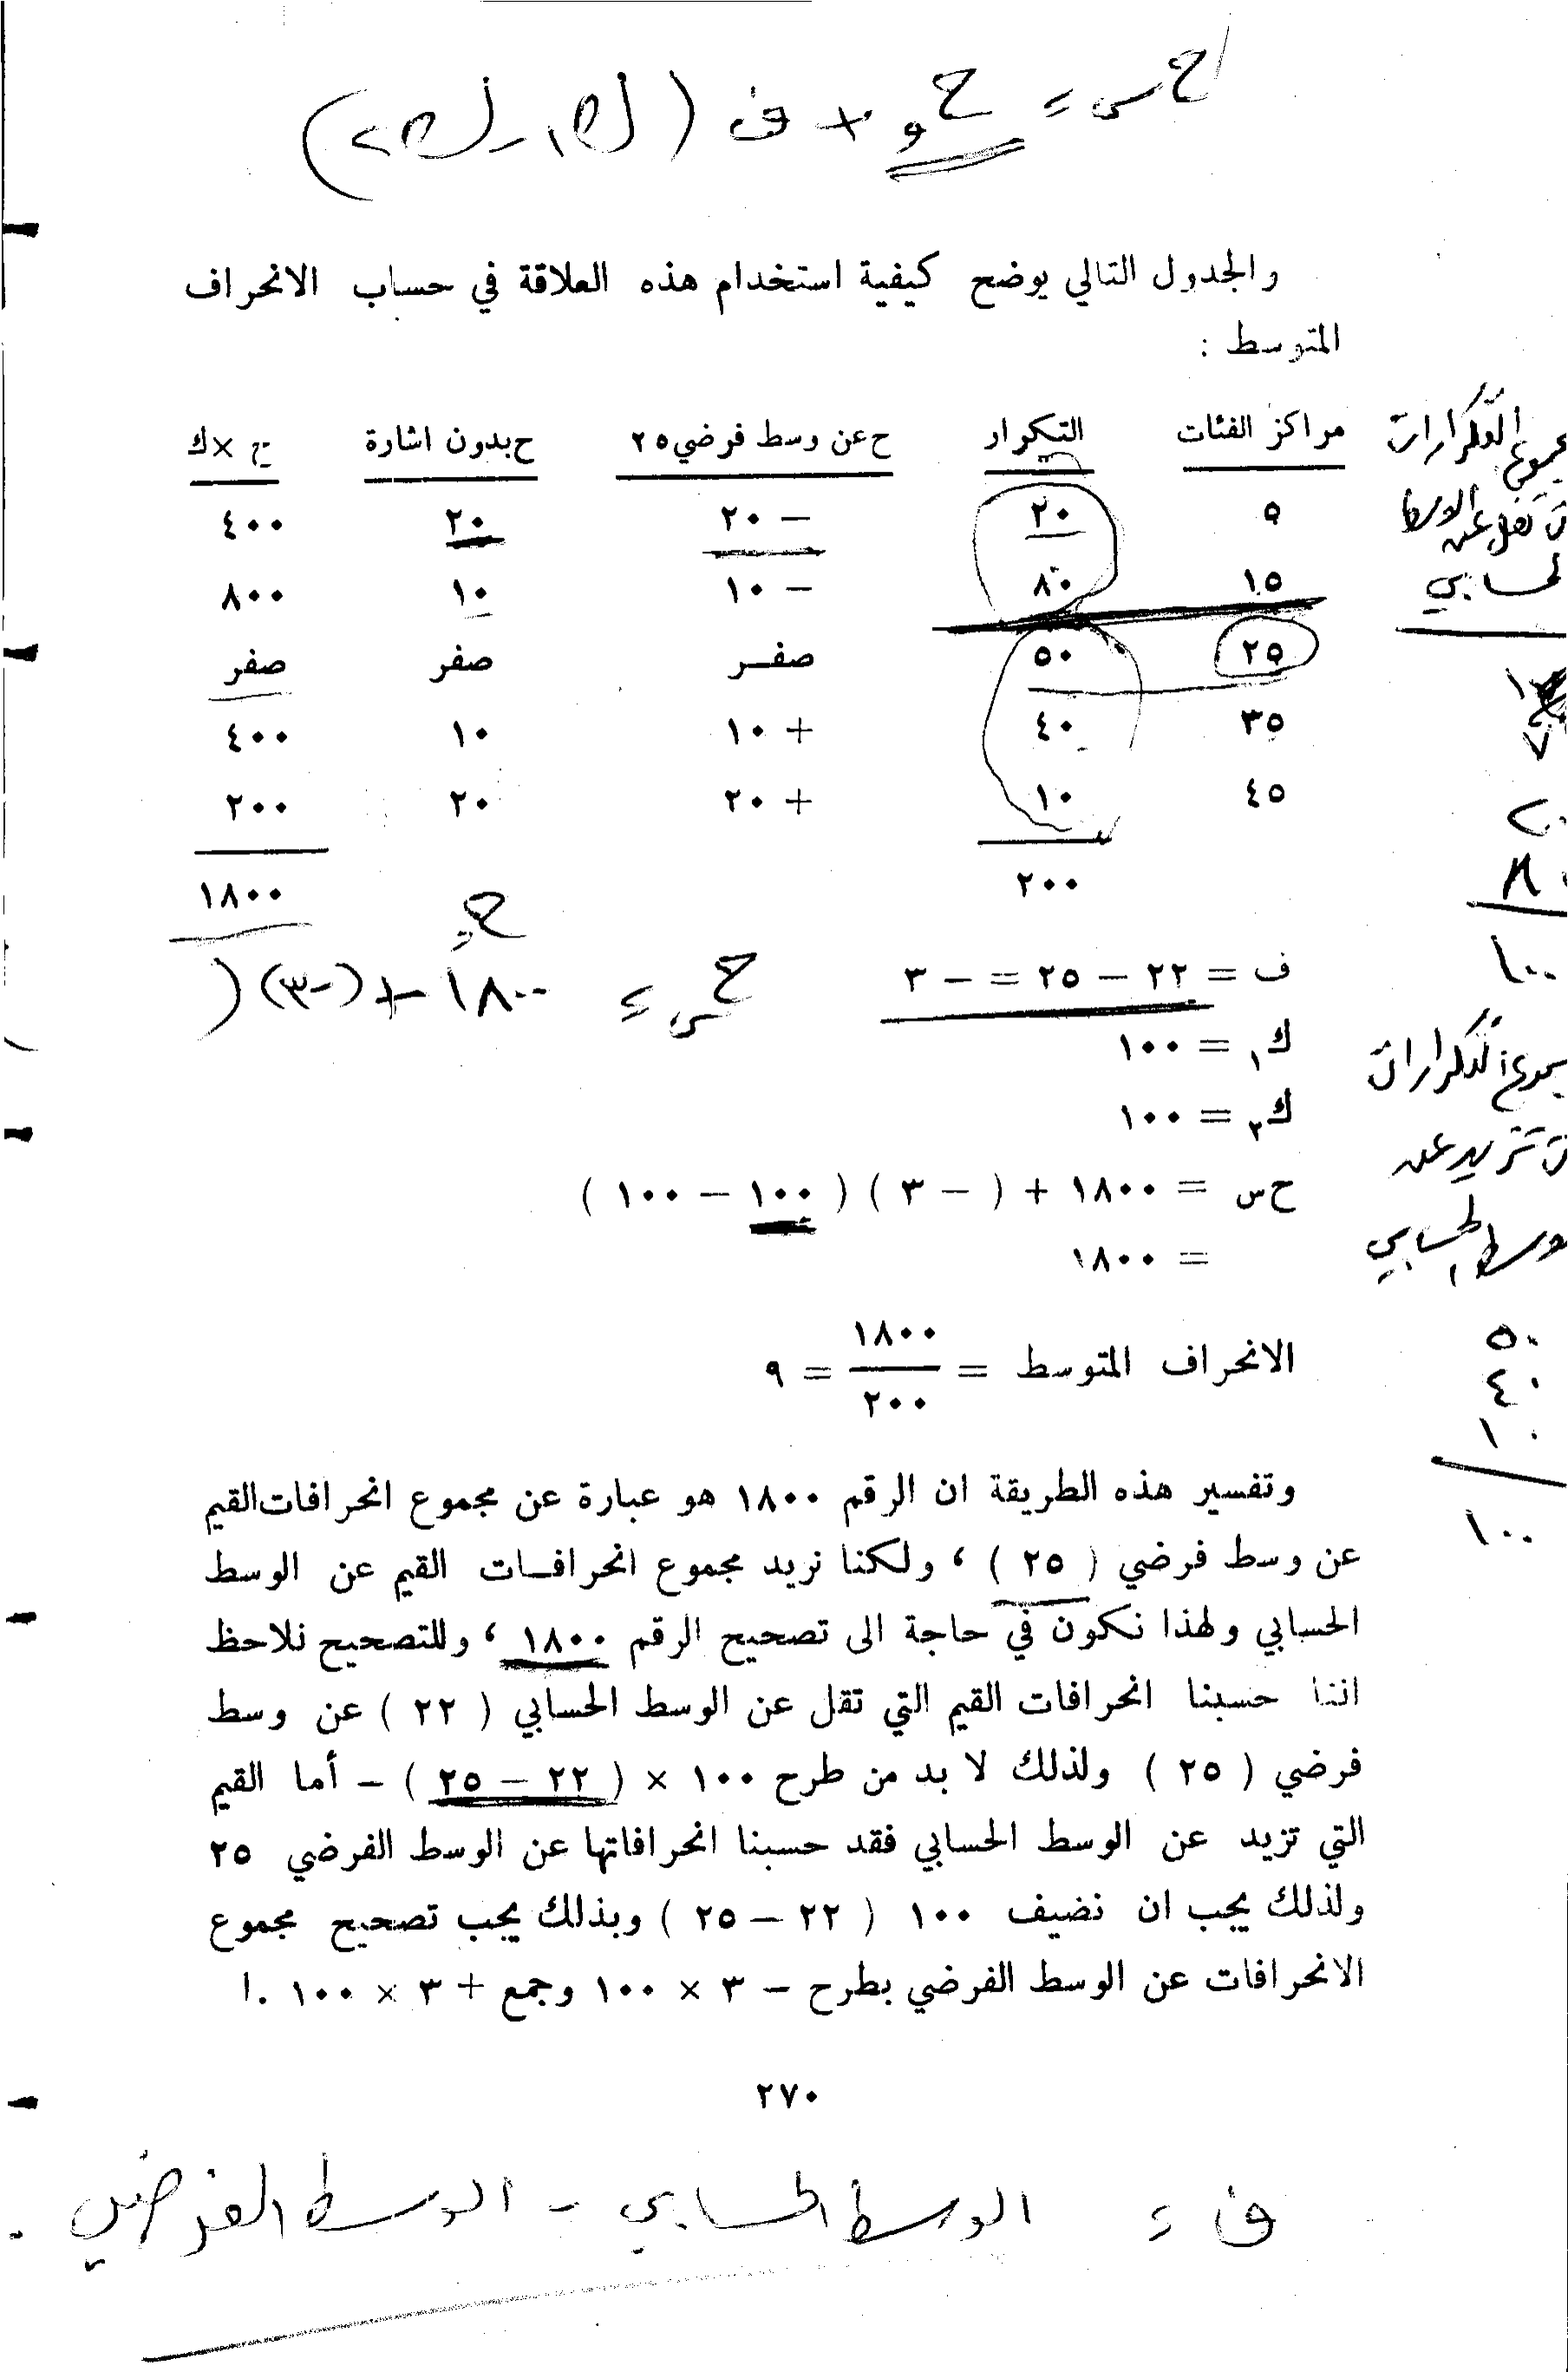 ح س = ح و + ف (ك١ - ك٢)
والجدول التالي يوضح كيفية استخدام هذه العلاقة في حساب الانحراف
المتوسط :
مراكز الفئات التكرار ح عن وسط فرضي ٢٥ ح بدون اشارة ح × ك
٥ ٢٠ - ٢٠ ٢٠ ٤٠٠
١٥ ٨٠ - ١٠ ١٠ ٨٠٠
٢٥ ٥٠ صفر صفر صفر
٣٥ ٤٠ + ١٠ ١٠ ٤٠٠
٤٥ ١٠ + ٢٠ ٢٠ ٢٠٠
٢٠٠ ١٨٠٠
ف = ٢٢ - ٢٥ = - ٣
ح س = ١٨٠٠ + (-٣) (
ك١ = ١٠٠
ك٢ = ١٠٠
ح س = ١٨٠٠ + ( - ٣ ) ( ١٠٠ - ١٠٠ )
= ١٨٠٠
الانحراف المتوسط = ١٨٠٠ / ٢٠٠ = ٩
وتفسير هذه الطريقة ان الرقم ١٨٠٠ هو عبارة عن مجموع انحرافات القيم
عن وسط فرضي ( ٢٥ ) ، ولكنا نريد مجموع انحرافات القيم عن الوسط
الحسابي ولهذا نكون في حاجة الى تصحيح الرقم ١٨٠٠ ، وللتصحيح نلاحظ
اننا حسبنا انحرافات القيم التي تقل عن الوسط الحسابي ( ٢٢ ) عن وسط
فرضي ( ٢٥ ) ولذلك لا بد من طرح ١٠٠ × ( ٢٢ - ٢٥ ) - أما القيم
التي تزيد عن الوسط الحسابي فقد حسبنا انحرافاتها عن الوسط الفرضي ٢٥
ولذلك يجب ان نضيف ١٠٠ ( ٢٢ - ٢٥ ) وبذلك يجب تصحيح مجموع
الانحرافات عن الوسط الفرضي بطرح - ٣ × ١٠٠ وجمع + ٣ × ١٠٠ .ا
٢٧٠
ف = الوسط الحسابي - الوسط الفرضي .
التكرارات
تقل عن الوسط
٢٠
٨٠
١٠٠
التكرارات
تزيد عن
الحسابي
٥٠
٤٠
١٠
١٠٠